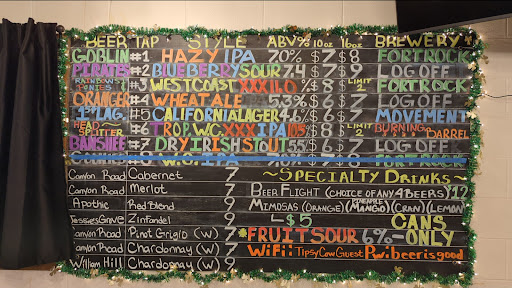 BEER TAP STYLE ABV% 10oz 16oz BREWERY
GOBLIN #1 HAZY IPA 7.0% $7 $8 FORT ROCK
PIRATES #2 BLUEBERRY SOUR 7.4 $7 $8 LOG OFF
RAINBOWS PONIES #3 WEST COAST XXX ILO % $8 LIMIT 2 FORT ROCK
ORANGER #4 WHEAT ALE 5.3% $6 $7 LOG OFF
1st LAG. #5 CALIFORNIA LAGER 4.6% $6 $7 MOVEMENT
HEAD SPLITTER #6 TROP. W.C. XXX IPA 10.5% $8 LIMIT 2 BURNING BARREL
BANSHEE #7 DRY IRISH STOUT 5.5% $6 $7 LOG OFF
W.C. IPA FORT ROCK
Canyon Road Cabernet 7
Canyon Road Merlot 7
Apothic Red Blend 9
Jessies Grove Zinfandel 9
Canyon Road Pinot Grigio (W) 7
Canyon Road Chardonnay (W) 7
William Hill Chardonnay (W) 9
~SPECIALTY DRINKS~
BEER FLIGHT (CHOICE OF ANY 4 BEERS) $12
MIMOSAS (ORANGE) (PINEAPPLE MANGO) (CRAN) (LEMON)
$5 CANS
*FRUIT SOUR 6% -ONLY
WiFi: TipsyCowGuest Pw: beerisgood